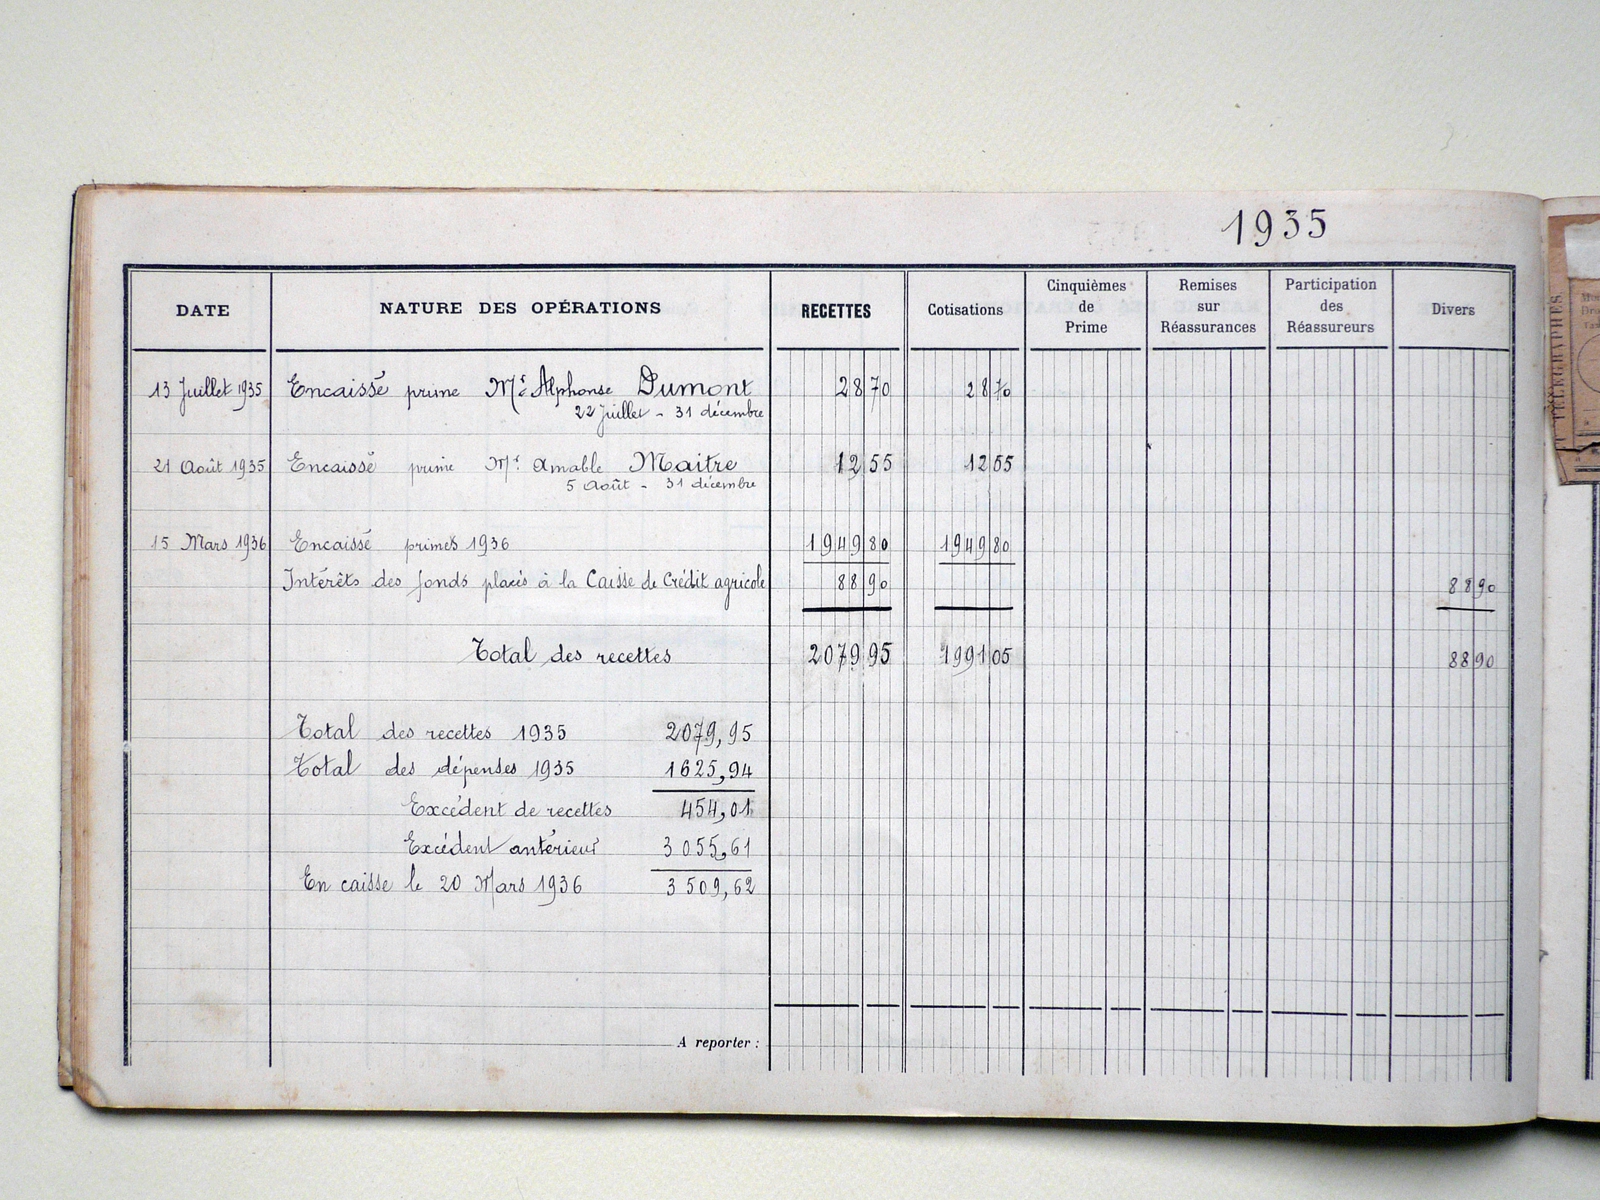 1935
DATE NATURE DES OPÉRATIONS RECETTES Cotisations Cinquièmes de Prime Remises sur Réassurances Participation des Réassureurs Divers
13 Juillet 1935 Encaissé prime Mr. Alphonse Dumont 28 70 28 70
22 Juillet - 31 décembre
21 Août 1935 Encaissé prime Mr. Amable Maitre 12 55 12 55
5 Août - 31 décembre
15 Mars 1936 Encaissé primes 1936 1949 80 1949 80
Intérêts des fonds placés à la Caisse de Crédit agricole 88 90 88 90
Total des recettes 2079 95 1991 05 88 90
Total des recettes 1935 2079,95
Total des dépenses 1935 1625,94
Excédent de recettes 454,01
Excédent antérieur 3055,61
En caisse le 20 Mars 1936 3509,62
A reporter :
TÉLÉGRAPHES